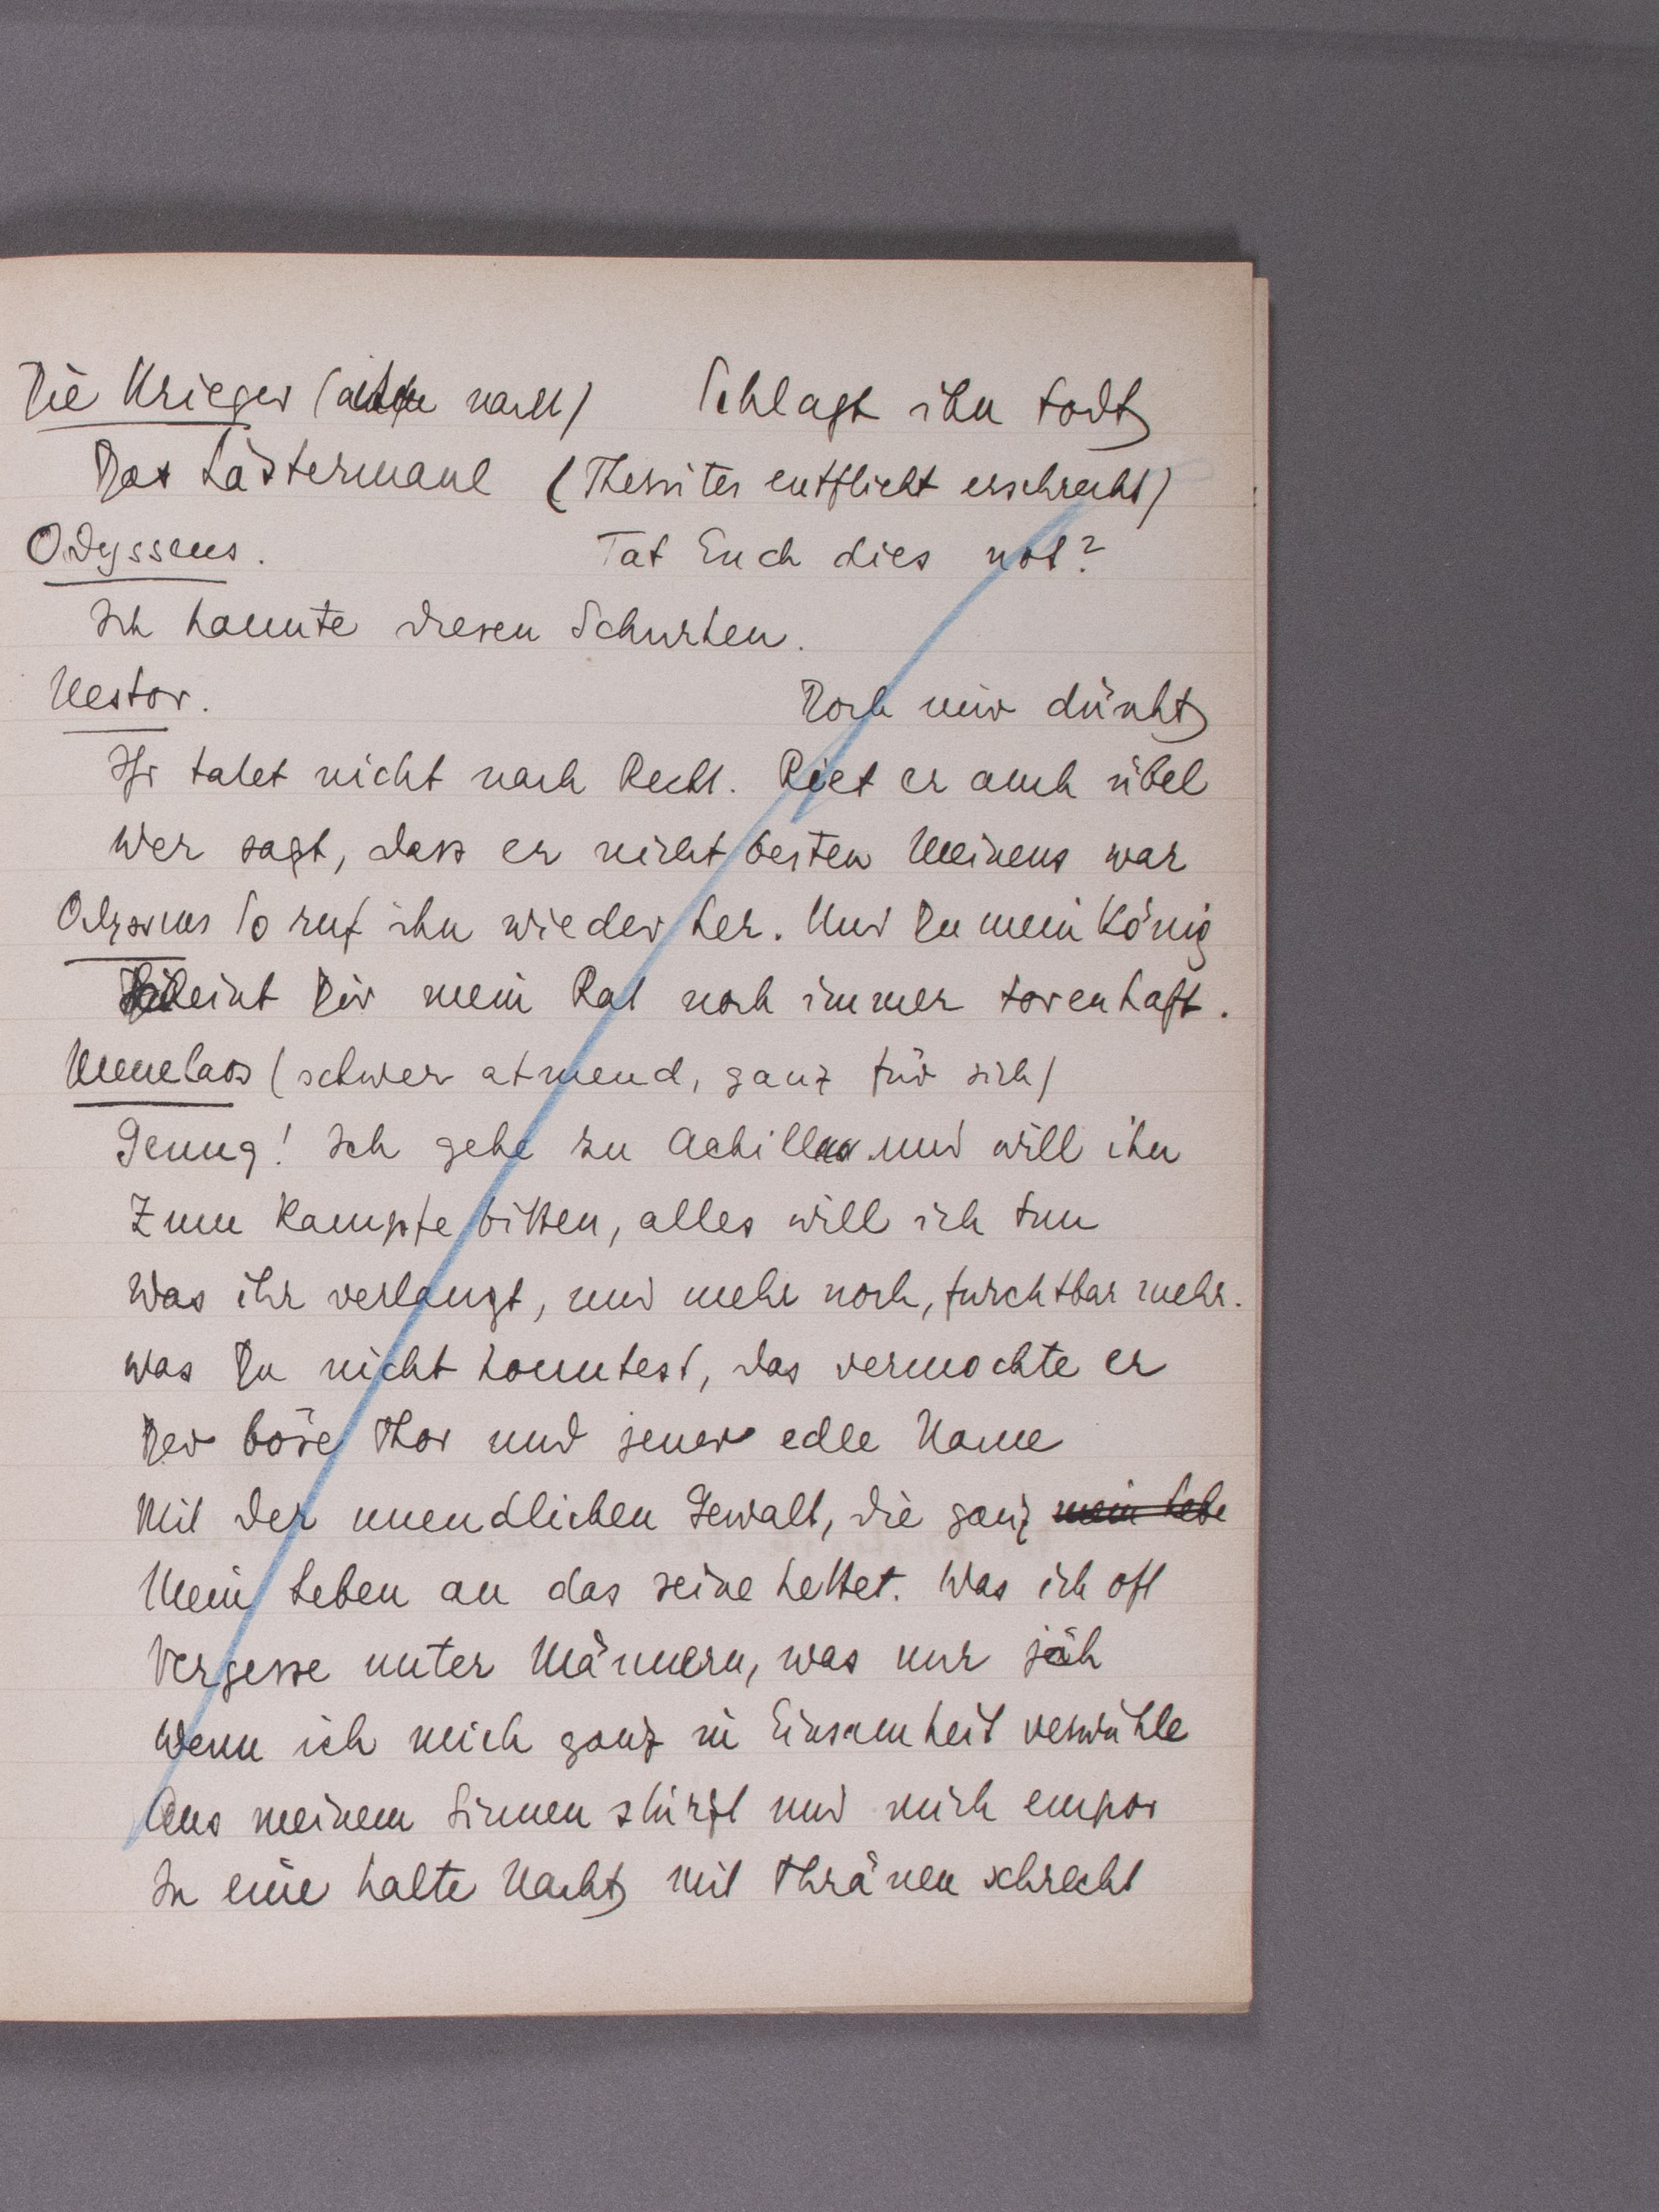 Die Krieger ( nach) Schlagt ihn todt
Das Lästermaul (Thersites entflieht erschreckt)
Odysseus. Tat Euch dies not?
Ich kannte diesen Schurken.
Nestor. Doch mir dünkt
Ihr tatet nicht nach Recht. Riet er auch übel
Wer sagt, dass er nicht besten Meinens war
Odysseus So ruf ihn wieder her. Und Du mein König
Scheint Dir mein Rat noch immer torenhaft.
Menelaos (schwer atmend, ganz für sich)
Genug! Ich gehe zu Achill und will ihn
Zum Kampfe bitten, alles will ich tun
Was ihr verlangt, und mehr noch, furchtbar mehr.
Was Du nicht konntest, das vermochte er
Der böse Thor und jener edle Name
Mit der unendlichen Gewalt, die ganz mein Lebe
Mein Leben an das seine kettet. Was ich oft
Vergesse unter Männern, was nur jäh
Wenn ich mich ganz in Einsamkeit verwühle
Aus meinem Sinnen stürzt und mich empor
In eine kalte Nacht mit Thränen schreckt